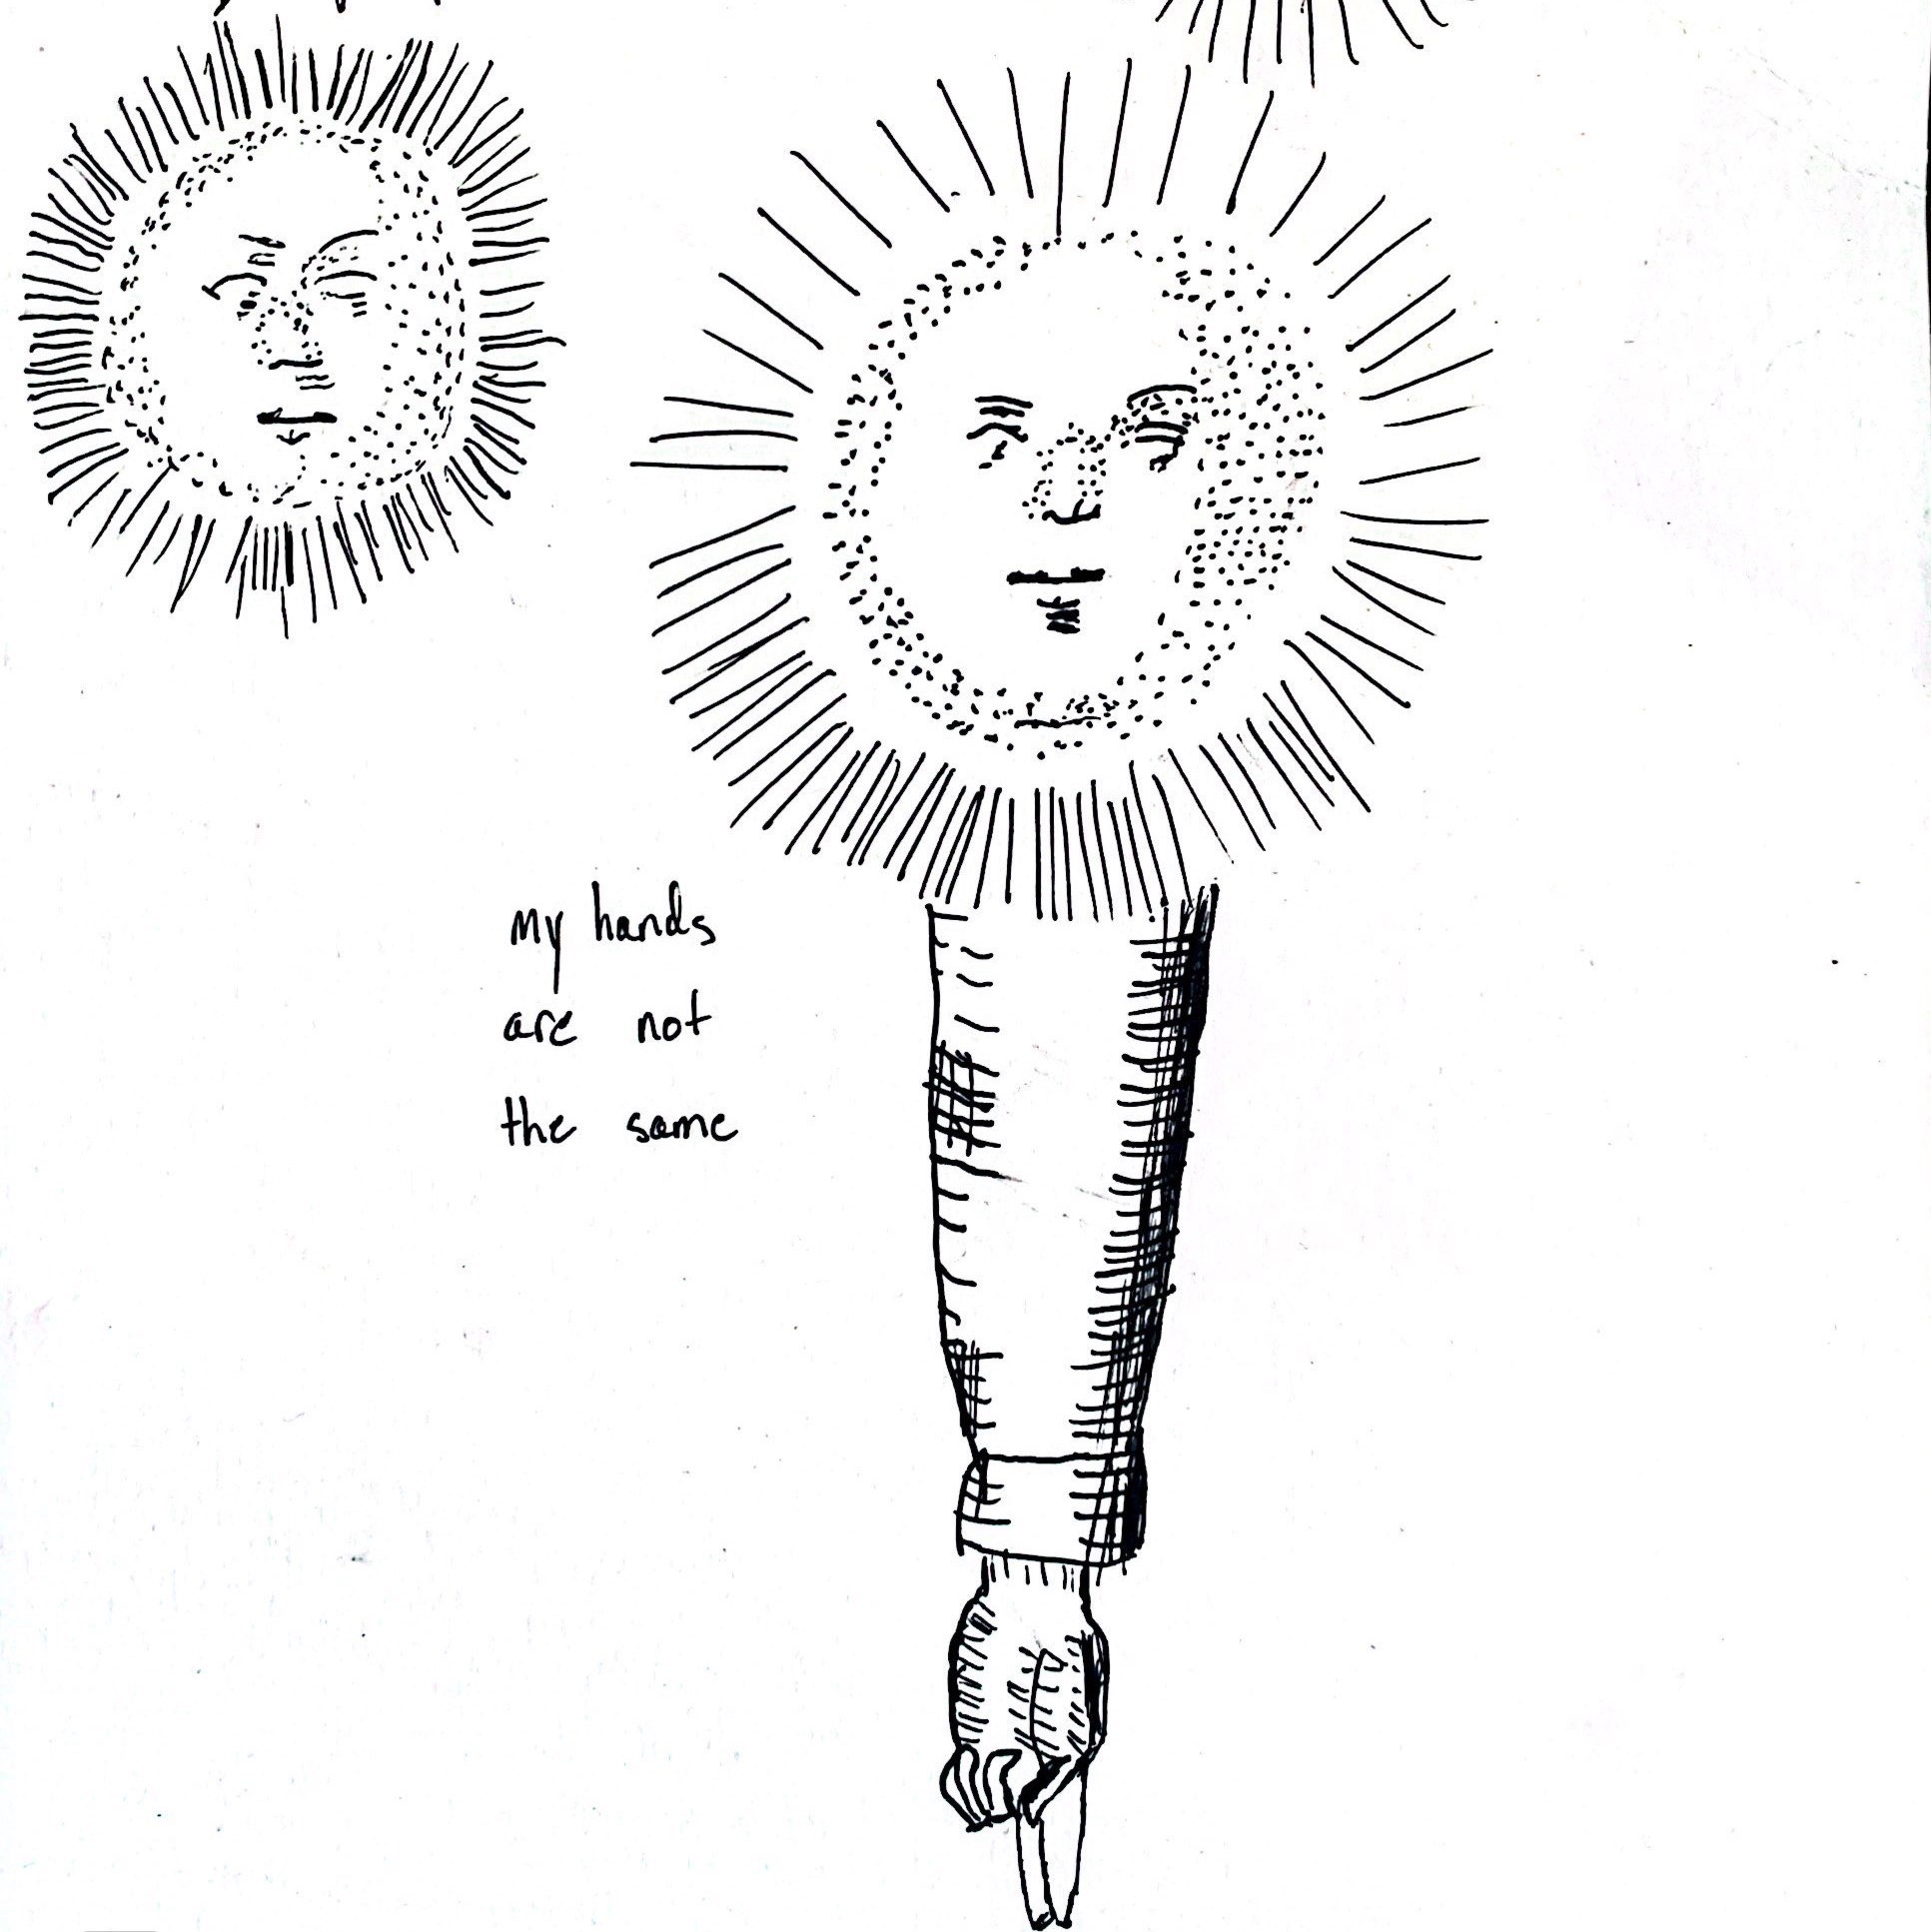 my hands
are not
the same